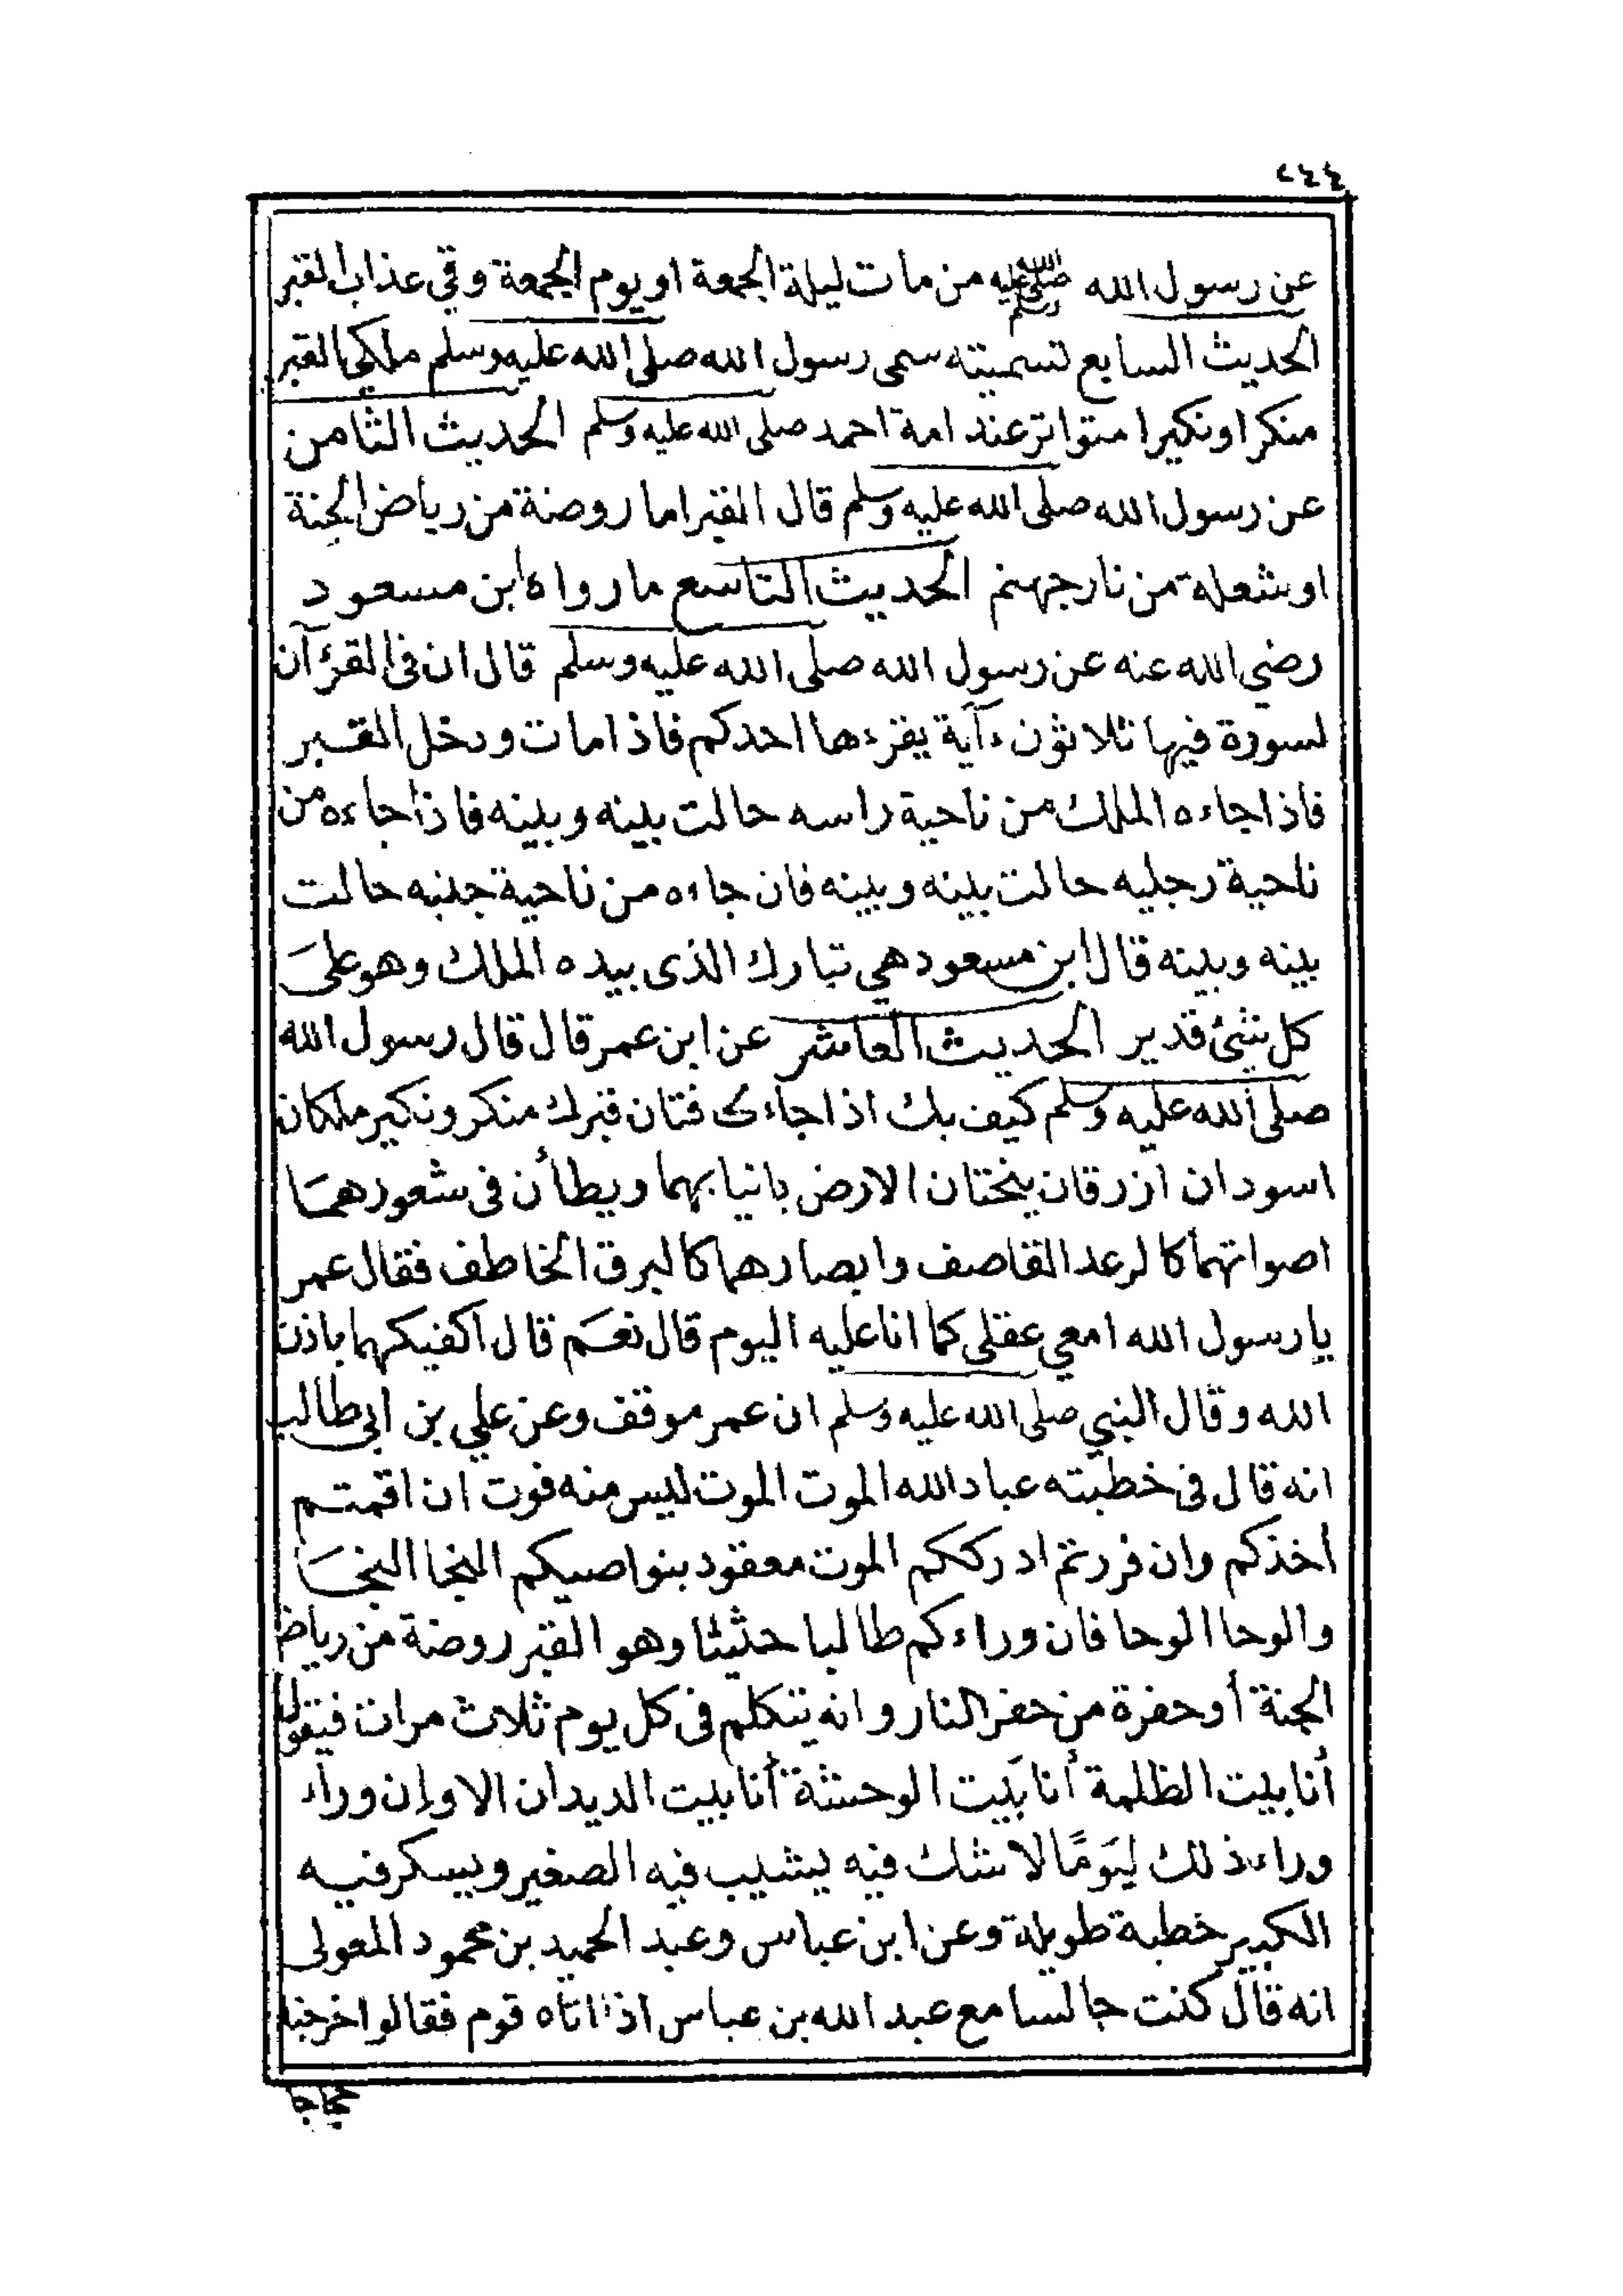 ٢٤٤
عن رسول الله صلى الله عليه وسلم من مات ليلة الجمعة او يوم الجمعة وقي عذاب القبر
الحديث السابع تسميته سمى رسول الله صلى الله عليه وسلم ملكي القبر
منكرا ونكيرا متواتر عند امة احمد صلى الله عليه وسلم الحديث الثامن
عن رسول الله صلى الله عليه وسلم قال القبر اما روضة من رياض الجنة
او شعلة من نار جهنم الحديث التاسع ما رواه ابن مسعود
رضي الله عنه عن رسول الله صلى الله عليه وسلم قال ان فى القرءآن
لسورة فيها ثلاثون ءآية يقرءها احدكم فاذا مات ودخل القبر
فاذا جاءه الملك من ناحية راسه حالت بينه وبينه فاذا جاءه من
ناحية رجليه حالت بينه وبينه فان جاءه من ناحية جنبه حالت
بينه وبينه قال ابن مسعود هي تبارك الذى بيده الملك وهو على
كل شئ قدير الحديث العاشر عن ابن عمر قال قال رسول الله
صلى الله عليه وسلم كيف بك اذا جاءك فتان قبرك منكر ونكير ملكان
اسودان ازرقان ينحتان الارض بانيابهما ويطأن فى شعورهما
اصواتهما كالرعد القاصف وابصارهما كالبرق الخاطف فقال عمر
يا رسول الله امعي عقلي كما انا عليه اليوم قال نعم قال اكفيكهما باذن
الله وقال النبي صلى الله عليه وسلم ان عمر موفق وعن علي بن ابي طالب
انه قال فى خطبته عباد الله الموت الموت ليس منه فوت ان اقمتم
أخذكم وان فررتم ادرككم الموت معقود بنواصيكم النجا النجا
والوحا الوحا فان وراءكم طالبا حثيثا وهو القبر روضة من رياض
الجنة أو حفرة من حفر النار وانه يتكلم فى كل يوم ثلاث مرات فيقول
أنا بيت الظلمة أنا بيت الوحشة أنا بيت الديدان الا وان وراء
وراء ذلك ليَومًا لا شك فيه يشيب فيه الصغير ويسكر فيه
الكبير خطبة طويلة وعن ابن عباس وعبد الحميد بن محمود المعولى
انه قال كنت جالسا مع عبد الله بن عباس اذ اتاه قوم فقالوا خرجنا
حجاجا